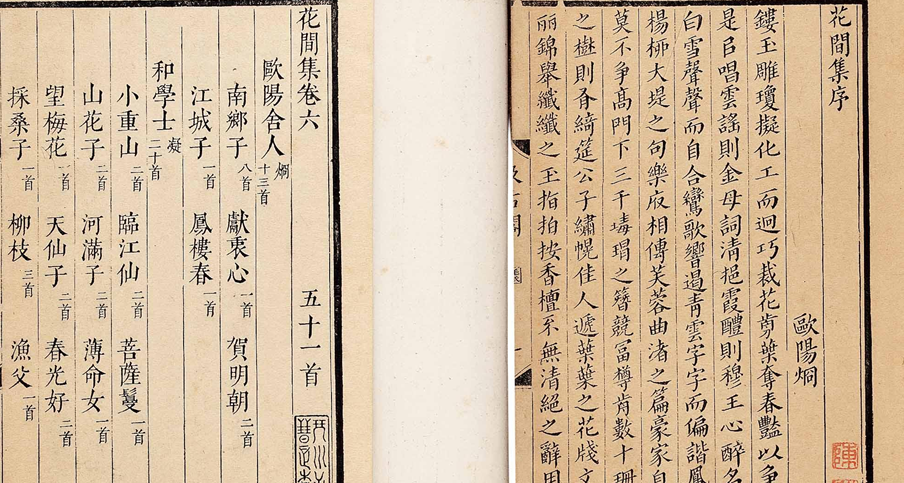 花間集序
歐陽炯
鏤玉雕瓊擬化工而迥巧裁花剪葉奪春豔以爭
是㠯唱雲謠則金母詞清挹霞醴則穆王心醉名
白雪聲聲而自合鸞歌響遏青雲字字而偏諧鳳
楊柳大堤之句樂府相傳芙蓉曲渚之篇豪家自
莫不爭高門下三千瑇瑁之簪競冨樽前數十珊
之樹則有綺筵公子繡幌佳人遞葉葉之花牋文
麗錦舉纖纖之玉指拍按香檀不無清絕之辭用
花間集卷六
五十一首
歐陽舍人炯十三首
南鄉子八首 獻衷心一首 賀明朝二首
江城子一首 鳳樓春一首
和學士凝二十首
小重山二首 臨江仙二首 菩薩鬘一首
山花子二首 河滿子二首 薄命女一首
望梅花一首 天仙子二首 春光好二首
採桑子一首 柳枝三首 漁父一首